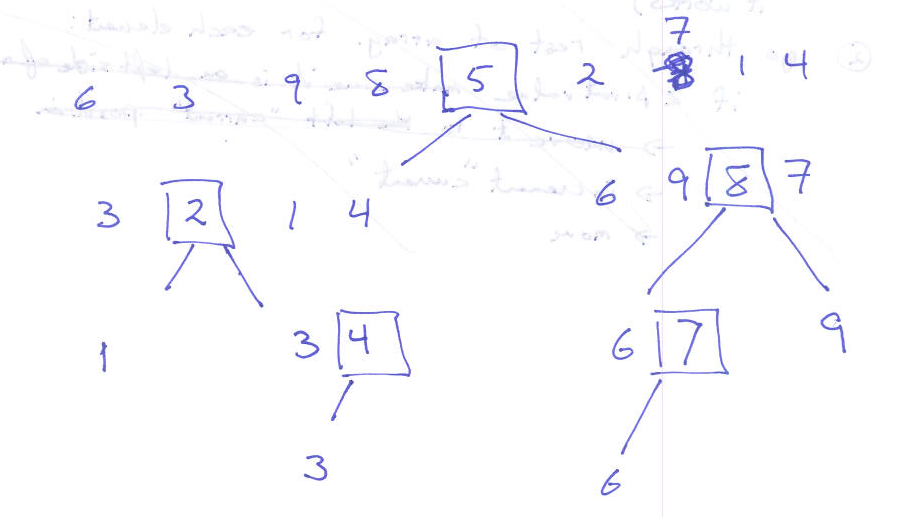 6 3 9 8 5 2 7 1 4
3 2 1 4
6 9 8 7
1
3 4
6 7
9
3
6